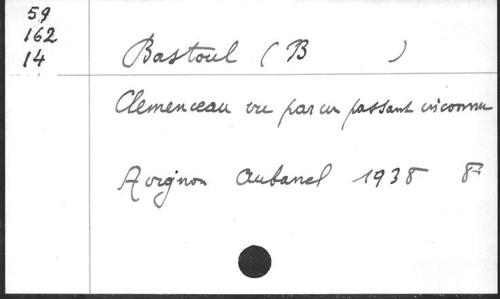 59
162
14
Bastoul (B )
Clemenceau vu par un passant inconnu
Avignon Aubanel 1938 8°